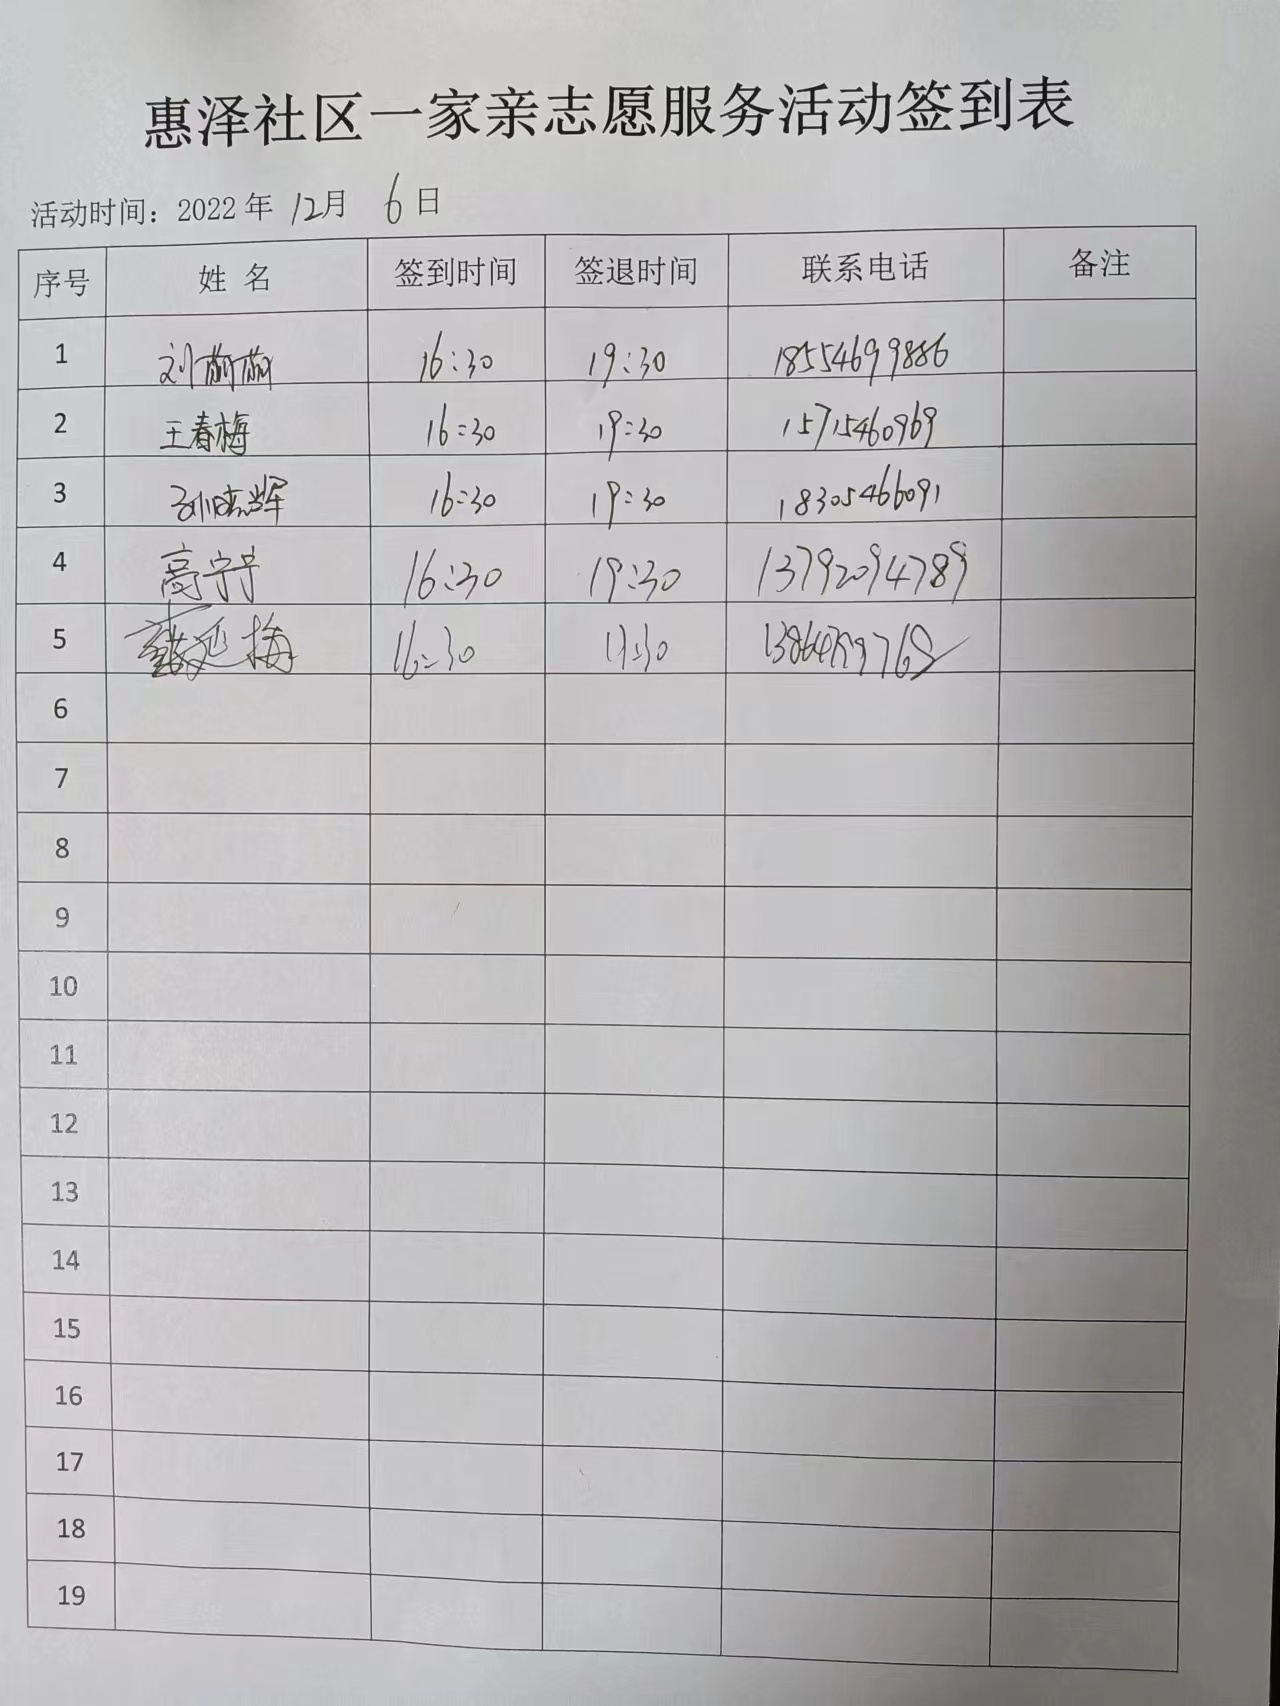 惠泽社区一家亲志愿服务活动签到表
活动时间：2022年 12月 6日
序号 姓 名 签到时间 签退时间 联系电话 备注
1 刘萌萌 16:30 19:30 18554699886
2 王春梅 16:30 19:30 15715460969
3 孙晓辉 16:30 19:30 18305466091
4 高宁宁 16:30 19:30 13792094789
5 延梅 16:30
6
7
8
9
10
11
12
13
14
15
16
17
18
19